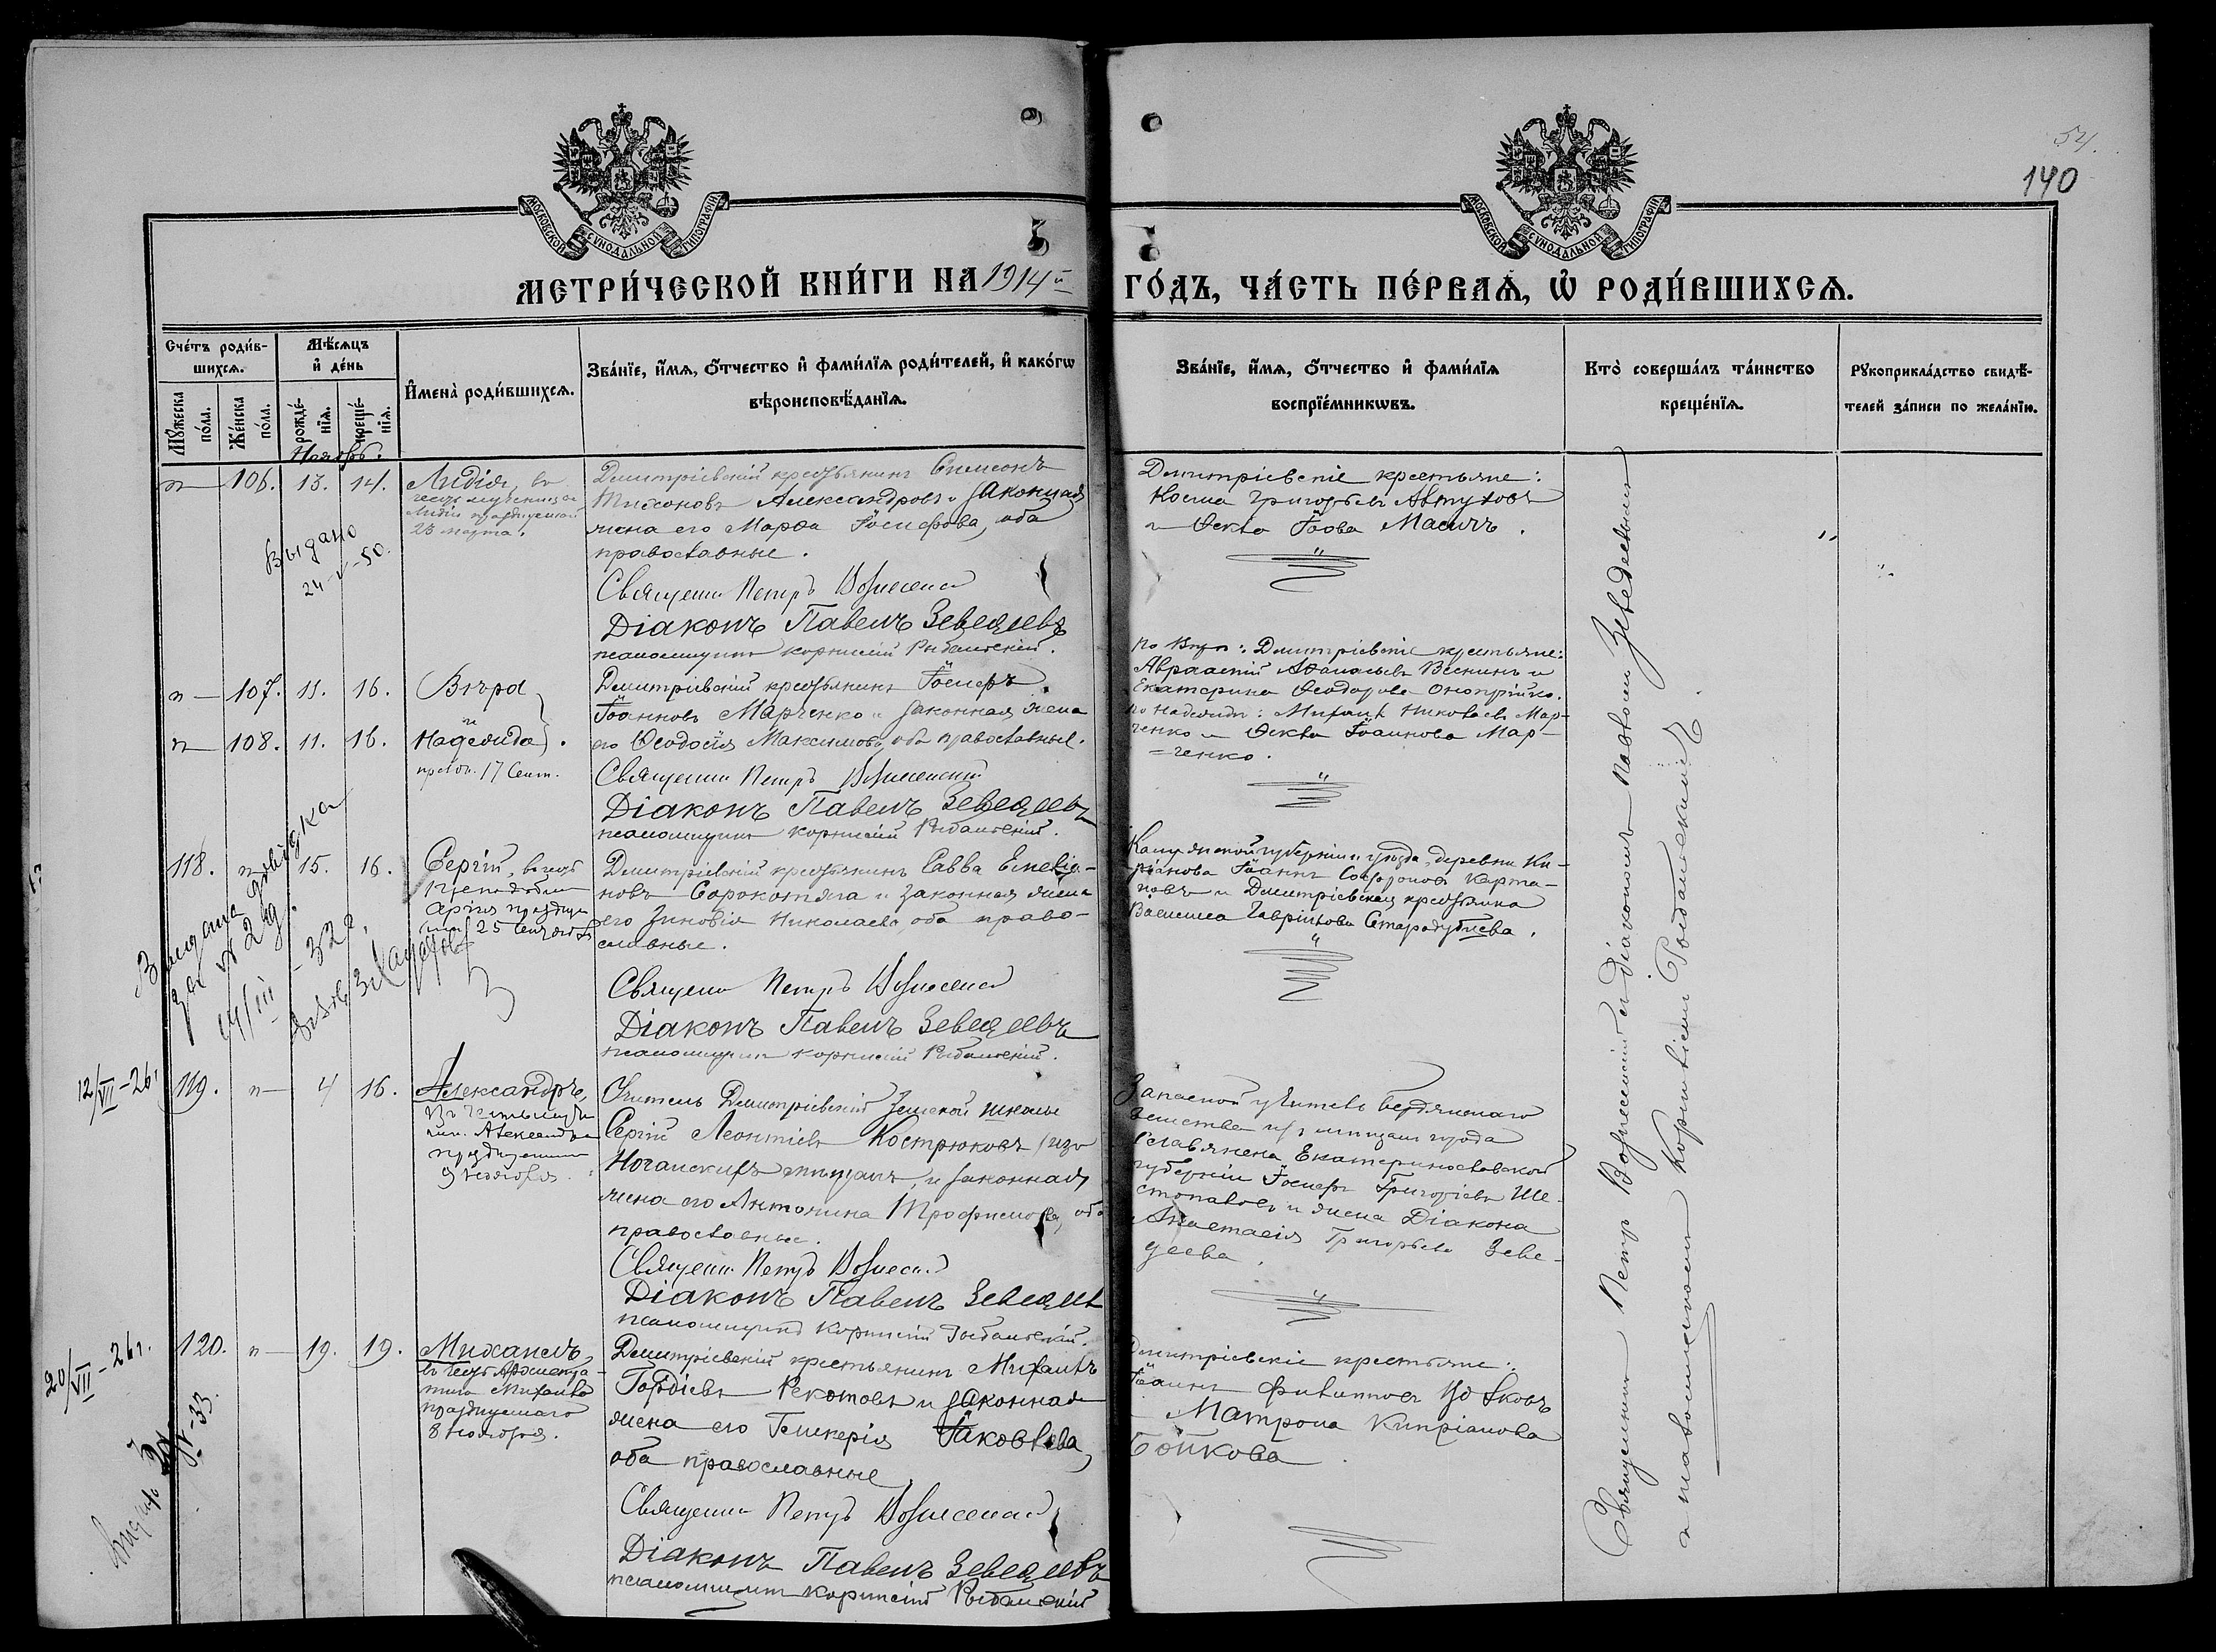 54.
140
МОСКОВСКОЙ СУНОДАЛЬНОЙ ТИПОГРАФІИ
МОСКОВСКОЙ СУНОДАЛЬНОЙ ТИПОГРАФІИ
МЕТРИ́ЧЕСКОЙ КНИ́ГИ НА 1914й ГО́ДЪ, ЧА́СТЬ ПЕ́РВАѦ, Ѡ҆ РОДИ́ВШИХСѦ.
Сче́тъ роди́в-
шихсѧ.
Мѣ́сѧцъ
и҆ де́нь
Мꙋ́жеска
по́ла.
Же́нска
по́ла.
рожде́-
нїѧ.
креще́-
нїѧ.
И҆мена̀ роди́вшихсѧ.
Зва́нїе, и҆́мѧ, о҆́тчество и҆ фами́лїѧ роди́телей, и҆ како́гѡ
вѣроисповѣ́данїѧ.
Зва́нїе, и҆́мѧ, о҆́тчество и҆ фами́лїѧ
воспрїе́мникѡвъ.
Кто̀ соверша́лъ та́инство
креще́нїѧ.
Рꙋкоприкла́дство свидѣ́-
телей за́писи по жела́нїю.
Ноябрь.
106. 13. 14. Лидія, въ
честь мученицы
Лидіи празднуемой
23 марта.
Выдано
24-V-50.
Дмитріевскій крестьянинъ Симеонъ
Тихоновъ Александровъ и законная
жена его Марѳа Іосифова, оба
православные.
Священн Петръ Вознесенс
Діаконъ Павелъ Зеведеевъ
псаломщикъ Корнилій Рыбальскій.
Дмитріевскіе крестьяне:
Косма Григорьевъ Автуховъ
и Ѳекла Іова Масичъ.
107. 11. 16. Вѣра
108. 11. 16. Надежда.
празд. 17 Сент.
Дмитріевскій крестьянинъ Іосифъ
Іоанновъ Марченко и законная жена
его Ѳеодосія Максимова, оба православные.
Священни Петръ Вознесенскій
Діаконъ Павелъ Зеведеевъ
псаломщикъ Корнилій Рыбальскій.
По Вѣрѣ: Дмитріевскіе крестьяне:
Авраамій Аѳанасьевъ Веснинъ и
Екатерина Ѳеодорова Оноприйко.
по Надеждѣ: Михаилъ Николаевъ Мар-
ченко и Ѳекла Іоаннова Мар-
=ченко.
118. 15. 16. Сергій, въ честь
Преподобнаго
Сергія празднуе
25 Сентября
Видана довідка
32 г.
Дмитріевскій крестьянинъ Савва Емелья-
новъ Сорокотяга и законная жена
его Зиновія Николаева, оба право-
славные.
Священн Петръ Вознесенс
Діаконъ Павелъ Зеведеевъ
псаломщикъ Корнилій Рыбальскій.
губерніи и уѣзда, деревни Ки-
ріанова Іоаннъ Софроновъ Карта-
повъ и Дмитріевская крестьянка
Василиса Гавріилова Стародубцева.
12/VII-26г 119. 4 16. Александръ,
въ честь
кн. Александра
празднуемаго
Учитель Дмитріевской Земской школы
Сергій Леонтіевъ Костроюковъ /изъ
Ногайскихъ мѣщанъ, и законная
жена его Антонина Трофимова, оба
православные.
Священн Петръ Вознесенс
Діаконъ Павелъ Зеведеевъ
псаломщикъ Корнилій Рыбальскій.
Запасной учитель Бердянскаго
земства мѣщанинъ города
Славянска Екатеринославской
губерніи Іосифъ Григорьевъ Ше-
стопаловъ и жена Діакона
Анастасія Григорьева Зеве-
деева.
20/VII-26г. 120. 19. 19. Михаилъ,
въ честь Архистра-
тига Михаила
празднуемаго
8 ноября.
Дмитріевскій крестьянинъ Михаилъ
Гордіевъ Рекотовъ и законная
жена его Гликерія Іаковлева,
оба православные
Священн Петръ Вознесенс
Діаконъ Павелъ Зеведеевъ
псаломщикъ Корнилій Рыбальскій
Дмитріевскіе крестьяне:
Іоаннъ Филипповъ
Матрона Кипріанова
Бойкова.
Священникъ Петръ Вознесенскій съ діакономъ Павломъ Зеведеевымъ
и псаломщикомъ Корниліемъ Рыбальскимъ.